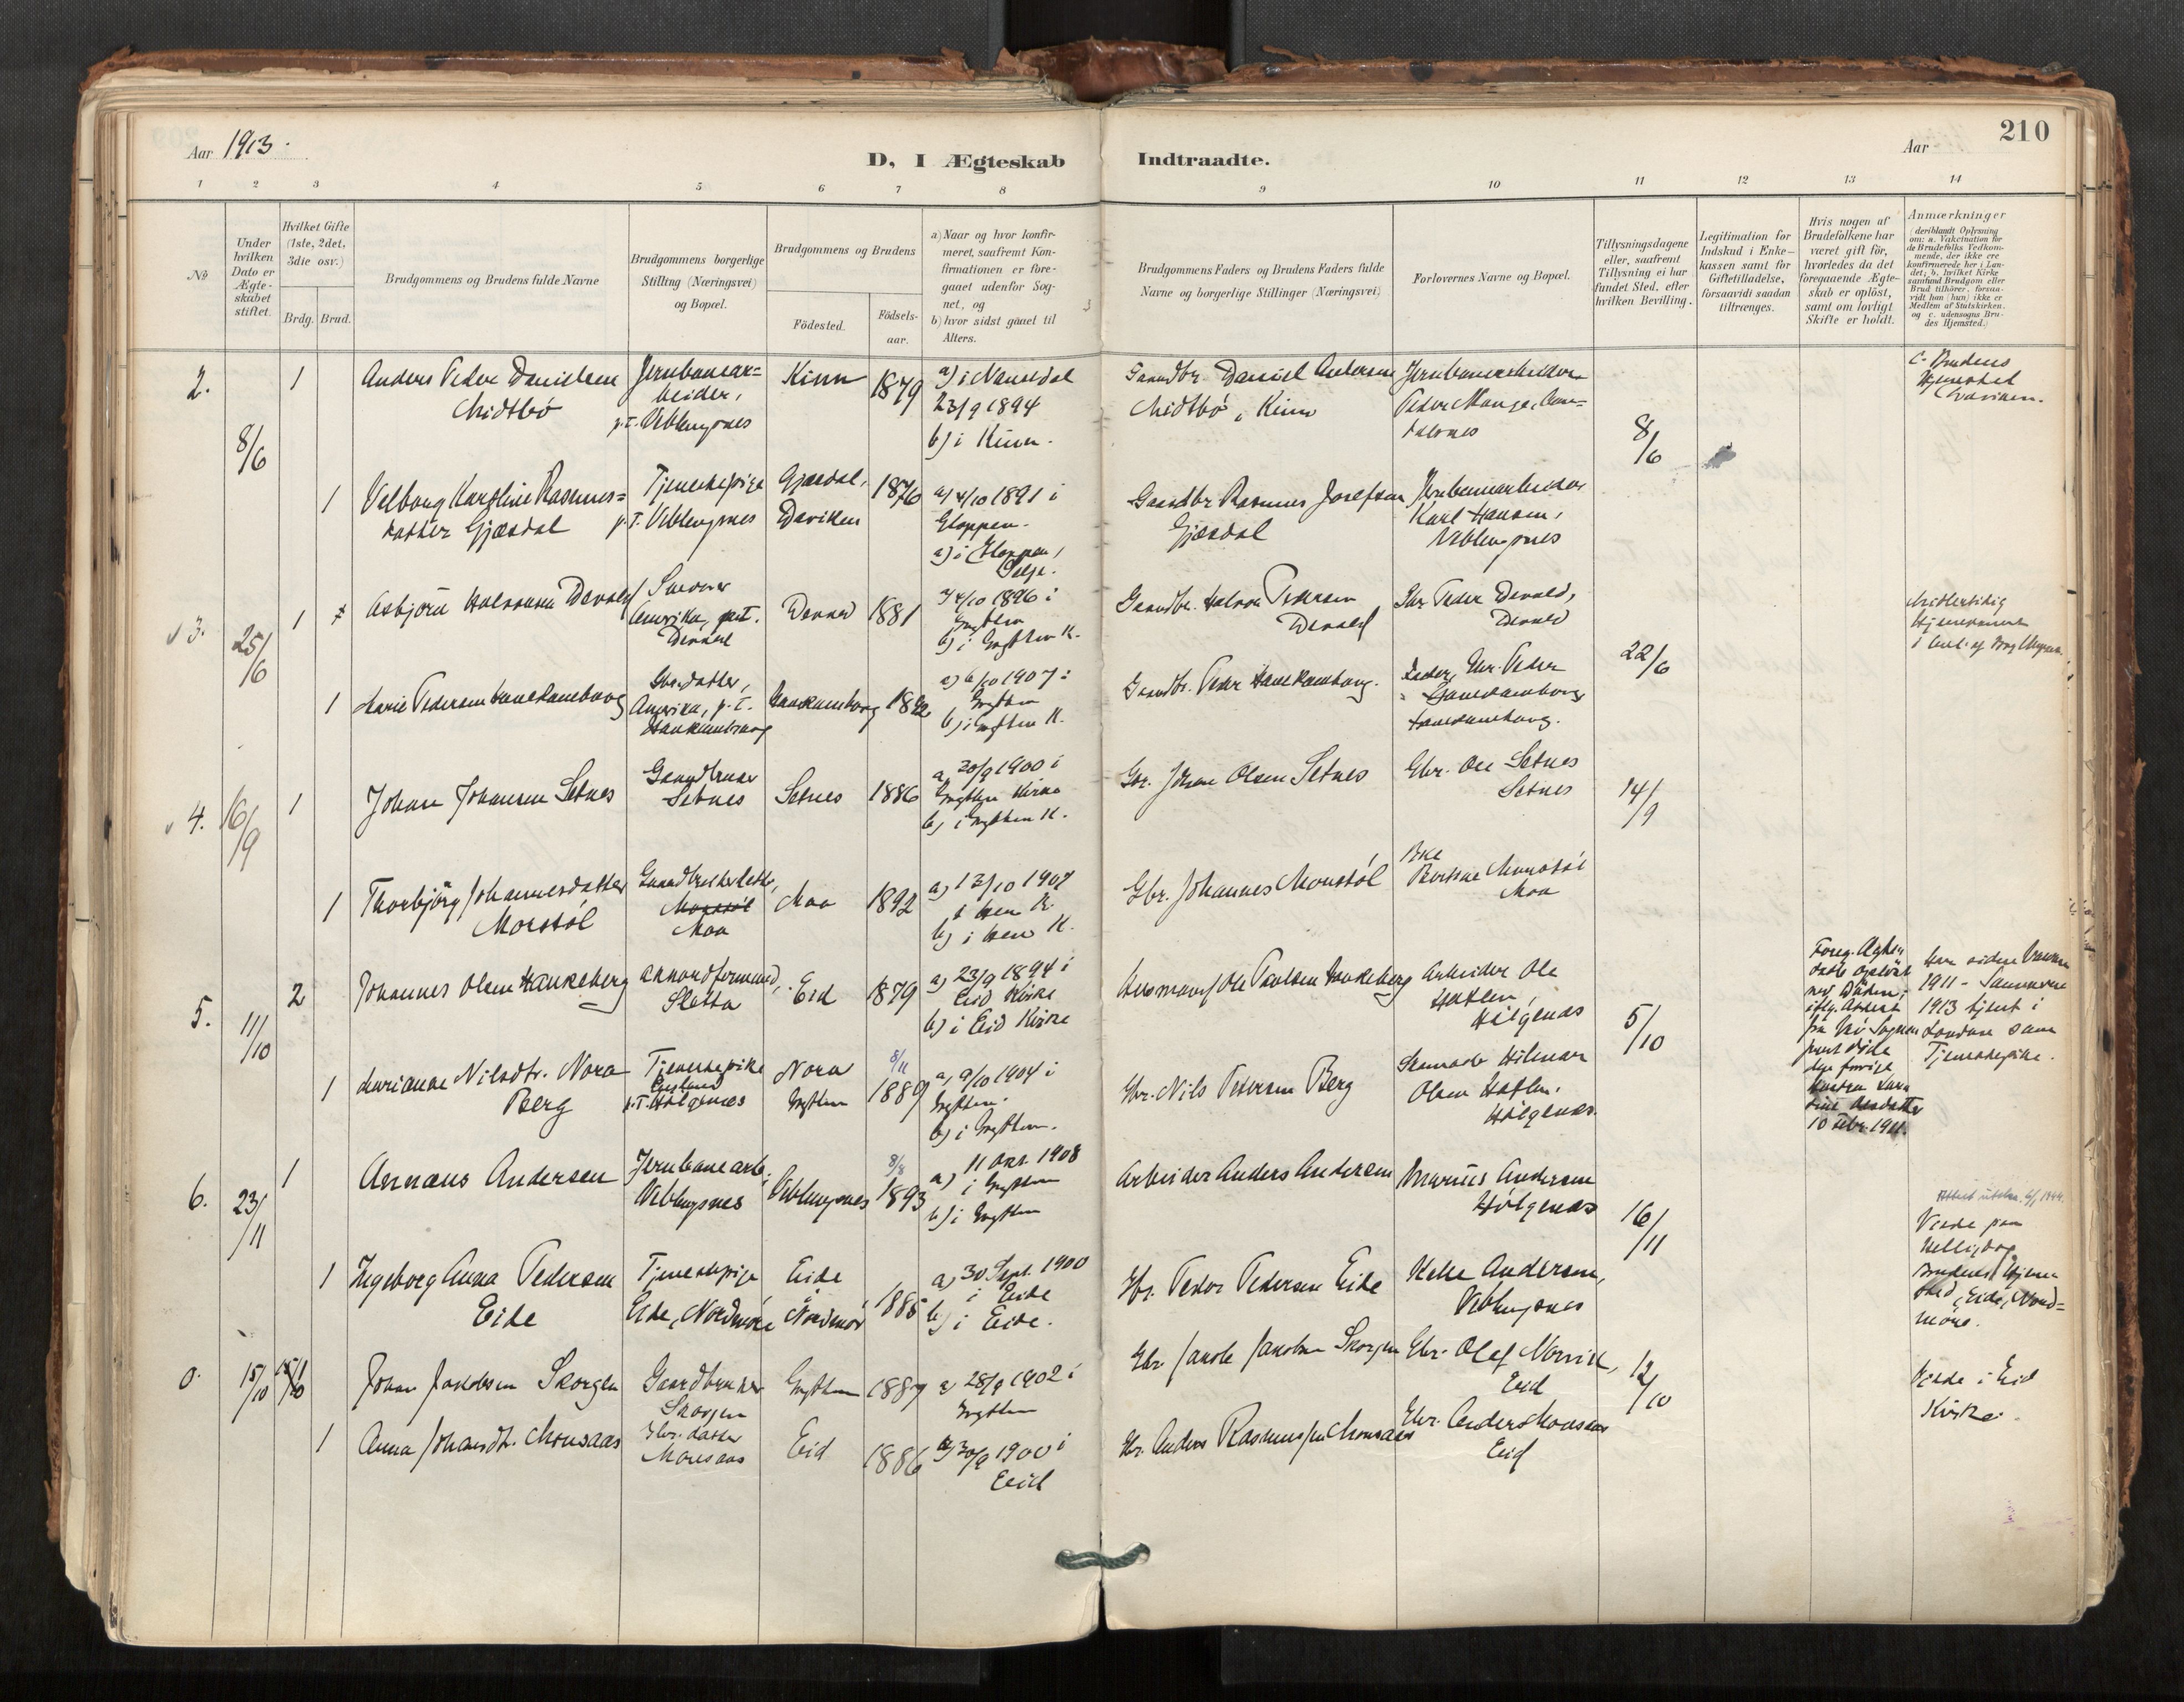 210
Aar 1913.
Aar
D, I Ægteskab Indtraadte.
1 2 3 4 5 6 7 8 9 10 11 12 13 14
No
Under hvilken Dato er Ægte-skabet stiftet.
Hvilket Gifte (1ste, 2det, 3die osv.)
Brdg. Brud.
Brudgommens og Brudens fulde Navne
Brudgommens borgerlige Stilling (Næringsvei) og Bopæl.
Brudgommens og Brudens
Fødested.
Fødsels-aar.
a) Naar og hvor konfir-meret, saafremt Kon-firmationen er fore-gaaet udenfor Sog-net, og
b) hvor sidst gaaet til Alters.
Brudgommens Faders og Brudens Faders fulde Navne og borgerlige Stillinger (Næringsvei)
Forlovernes Navne og Bopæl.
Tillysningsdagene eller, saafremt Tillysning ei har fundet Sted, efter hvilken Bevilling.
Legitimation for Indskud i Enke-kassen samt for Giftetilladelse, forsaavidt saadan tiltrænges.
Hvis nogen af Brudefolkene har været gift før, hvorledes da det foregaaende Ægte-skab er opløst, samt om lovligt Skifte er holdt.
Anmærkninger (deriblandt Oplysning om: a. Vakcination for de Brudefolks Vedkom-mende, der ikke ere konfirmerede her i Lan-det; b. hvilket Kirke samfund Brudgom eller Brud tilhører, forsaa-vidt han (hun) ikke er Medlem af Statskirken, og c. udensogns Bru-des Hjemsted.)
2.
8/6
1
Anders Peder Danielsen
Midtbö
Jernbanear=
beider,
p.T. Veblungsnes
Kinn
1879
a) i Naustdal
23/9 1894
b) i Kinn.
Gaardbr. Daniel Andersen
Midtbö, Kinn
Jernbanearbeider
Peder
8/6
c. Brudens
Hjemsted
Daviken.
1
Velborg Karoline Rasmus=
datter Gjæsdal
Tjenestepige
p.T. Veblungsnes
Gjæsdal,
Daviken
1876
a) 4/10 1891 i
Gloppen.
Gaardbr Rasmus Josefsen
Gjæsdal
Jernbanearbeider
Karl Hansen,
Veblungsnes
3.
25/6
1
Asbjörn Halvorsen Devold
Amerika, p.t.
Devold
Devold
1881
4/10 1896 i
Grytten
b) i Grytten K.
Gaardbr. Halvor Pedersen
Devold
Gbr Peder Devold,
Devold
22/6
Midlertidig
1
Marie Pedersen Hanekamhaug
Gbr.datter,
Amerika, p.T.
Hanekamhaug
Hanekamhaug
1892
a) 6/10 1907 i
Grytten
b) i Grytten K.
Gaardbr. Peder Hanekamhaug.
Fader, Gbr. Peder
Hanekamhaug
Hanekamhaug.
4.
16/9
1
Johan Johansen Setnes
Gaardbruger
Setnes
Setnes
1886
a) 30/9 1900 i
Grytten Kirke
b) i Grytten K.
Gbr. Johan Olsen Setnes
Gbr. Ole Setnes
Setnes
14/9
1
Thorbjörg Johannesdatter
Monstöl
Gaardbrukerdatter,
Monstöl
Moa
Moa
1892
a) 13/10 1907
i Isen K.
b) i Isen K.
Gbr. Johannes Monstöl
Monstöl
Moa
5.
11/10
2
Johannes Olsen Haukeberg
Akkordformand,
Sletta
Eid
1879
a) 23/9 1894 i
Eid Kirke
b) i Eid Kirke
Husmand Ole Paulsen Haukeberg
Arbeider Ole
Haflen,
Hölgenes
5/10
Foreg. Ægte-
skab oplöst
ved Döden;
10 Febr. 1911.
1911 - Sommeren
1913 tjent i
som
Tjenestepike.
1
Marianne Nilsdtr. Nora
Berg
Tjenestepike
p.T. Hölgenes
Nora
Grytten
8/11
1889
a) 9/10 1904 i
Grytten.
b) i Grytten.
Gbr. Nils Pedersen Berg
Hilmar
Olsen Haflen,
Hölgenes.
6.
23/11
1
Annæus Andersen
Jernbanearb.,
Veblungsnes
Veblungsnes
8/8
1893
a) 11 Okt. 1908
i Grytten
b) i Grytten
Arbeider Anders Andersen
Marius Andersen
Hölgenes
16/11
Viede paa
Helligdag
Brudens Hjem-
sted, Eide, Nord=
möre.
1
Ingeborg Anna Pedersen
Eide
Tjenestepige
Eide, Nordmöre
Eide
Nordmör
1885
a) 30 Sept. 1900
i Eide
b) i Eide.
Gbr. Peder Pedersen Eide
Andersen,
Veblungsnes
0.
15/10
1
Johan Jakobsen Skorgen
Gaardbruker
Skorgen
Grytten
1887
a) 28/9 1902 i
Grytten
Gbr Jakob Jakobsen Skorgen
Gbr. Olaf
Eid
12/10
Viede i Eid
Kirke.
1
Anna Johansdtr. Monsaas
Gbr. datter
Monsaas
Eid
1886
a) 30/9 1900 i
Eid
Gbr. Anders Rasmussen Monsaas
Gbr. Anders Monsaas
Eid